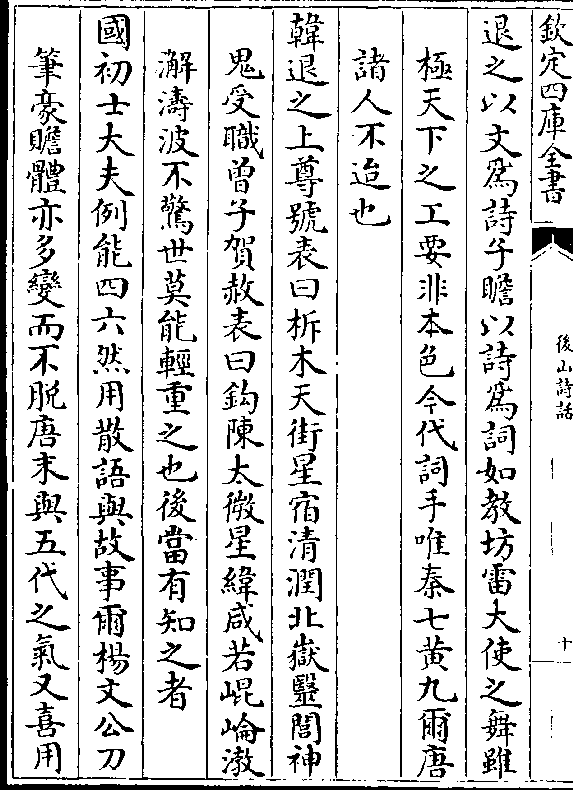 欽定四庫全書
後山詩話
十
退之以文爲詩子瞻以詩爲詞如教坊雷大使之舞雖
極天下之工要非本色今代詞手唯秦七黄九爾唐
諸人不迨也
韓退之上尊號表曰析木天街星宿清潤北嶽毉閭神
鬼受職曽子賀赦表曰鈎陳太微星緯咸若崐崘渤
澥濤波不驚世莫能輕重之也後當有知之者
國初士大夫例能四六然用散語與故事爾楊文公刀
筆豪贍體亦多變而不脱唐末與五代之氣又喜用